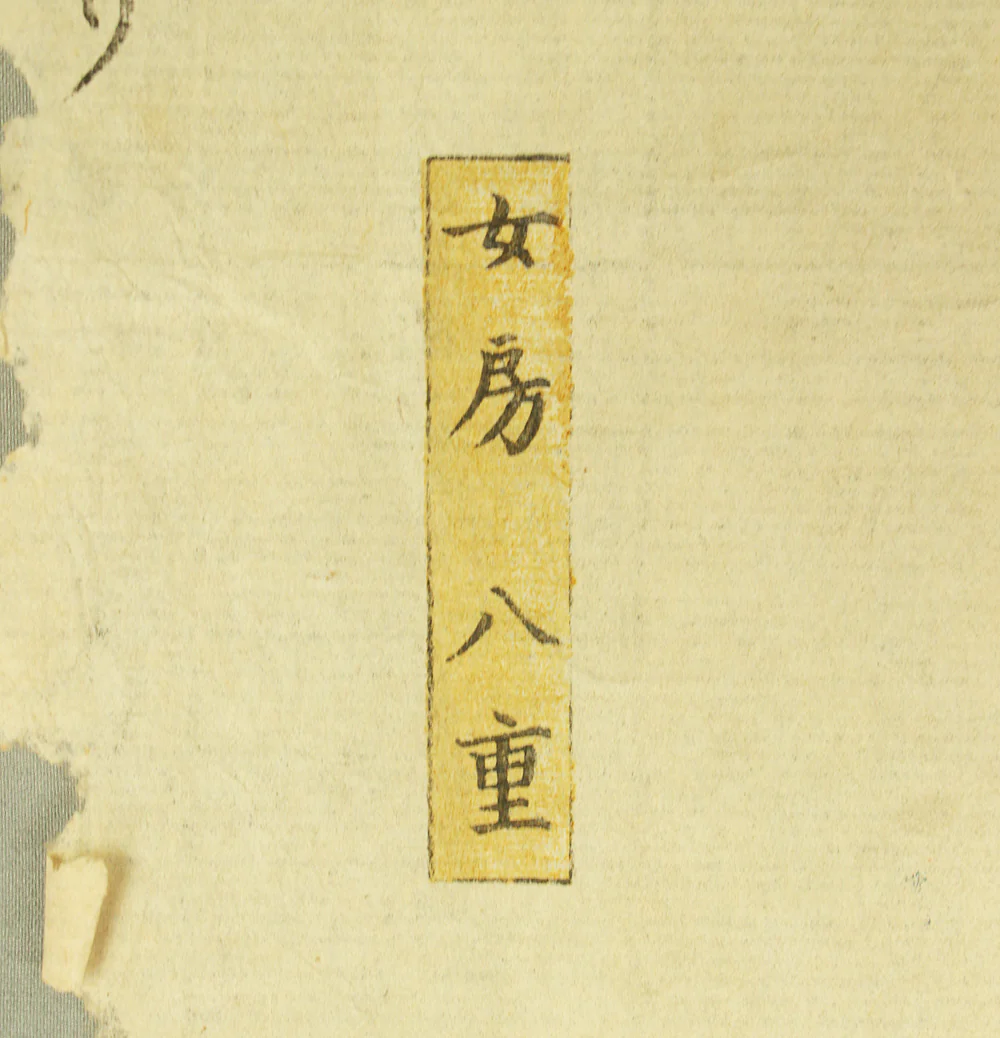 女房八重